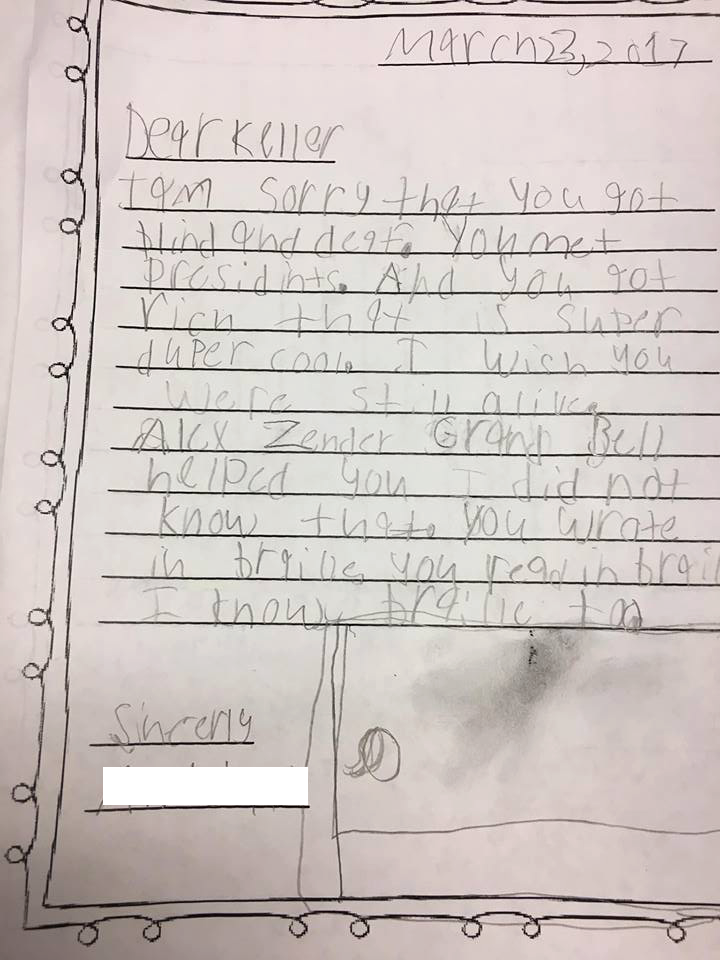 March 23, 2017
Dear Keller
I am sorry that you got
blind and deaf. You met
Presidints. And you got
rich that is super
duper cool. I wich you
were still alive
Alex Zender Grahp Bell
helped you I did not
know that. you wrate
in brailie you read in brail
I know brailie too
Sincerly